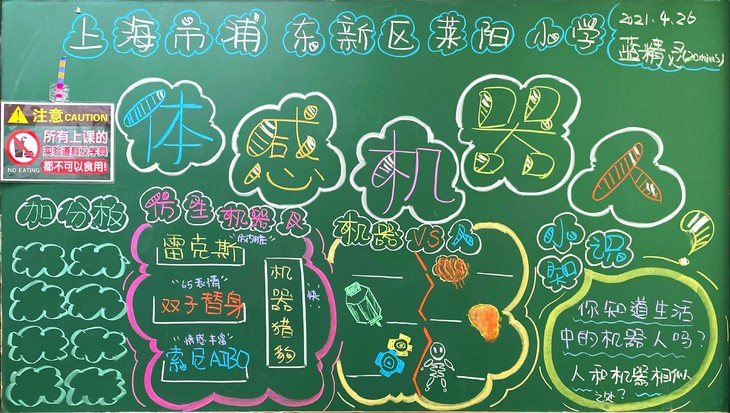 上海市浦东新区莱阳小学
2021.4.26
蓝精灵(20mins)
注意CAUTION
所有上课的
实验道具及学具
都不可以食用!
NO EATING
体感机器人
加分板
仿生机器人
雷克斯
"65表情"
双子替身
"情感丰富"
索尼AIBO
机器猎豹
"快"
机器VS人
小调
你知道生活
中的机器人吗?
人和机器相似
之处?